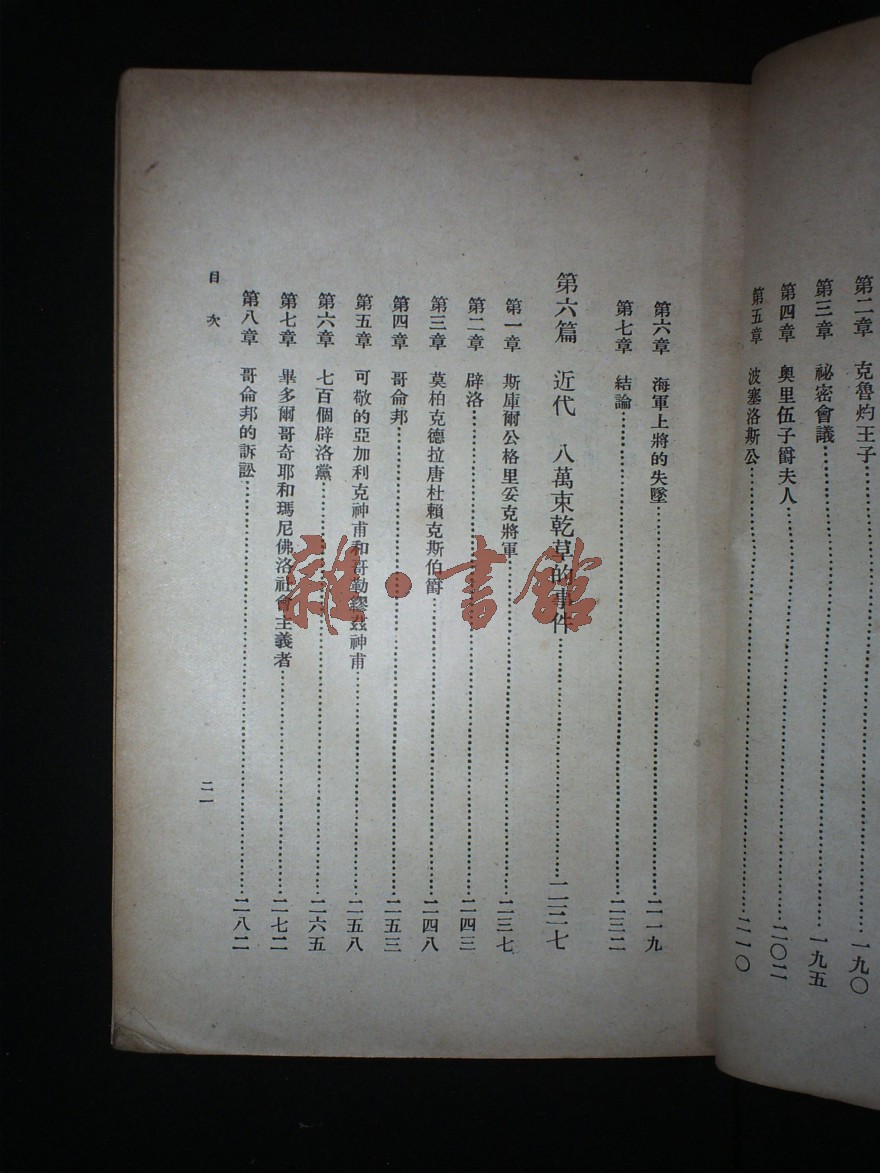 第二章　克魯灼王子……一九〇
第三章　祕密會議……一九五
第四章　奧里伍子爵夫人……二〇二
第五章　波塞洛斯公……二一〇
第六章　海軍上將的失墜……二一九
第七章　結論……二三二
第六篇　近代　八萬束乾草的事件……二三七
第一章　斯庫爾公格里妥克將軍……二三七
第二章　辟洛……二四三
第三章　莫柏克德拉唐杜賴克斯伯爵……二四八
第四章　哥侖邦……二五三
第五章　可敬的亞加利克神甫和哥勒繆茲神甫……二五八
第六章　七百個辟洛黨……二六五
第七章　畢多爾哥奇耶和瑪尼佛洛社會主義者……二七二
第八章　哥侖邦的訴訟……二八二
目次
二一
雜·書館